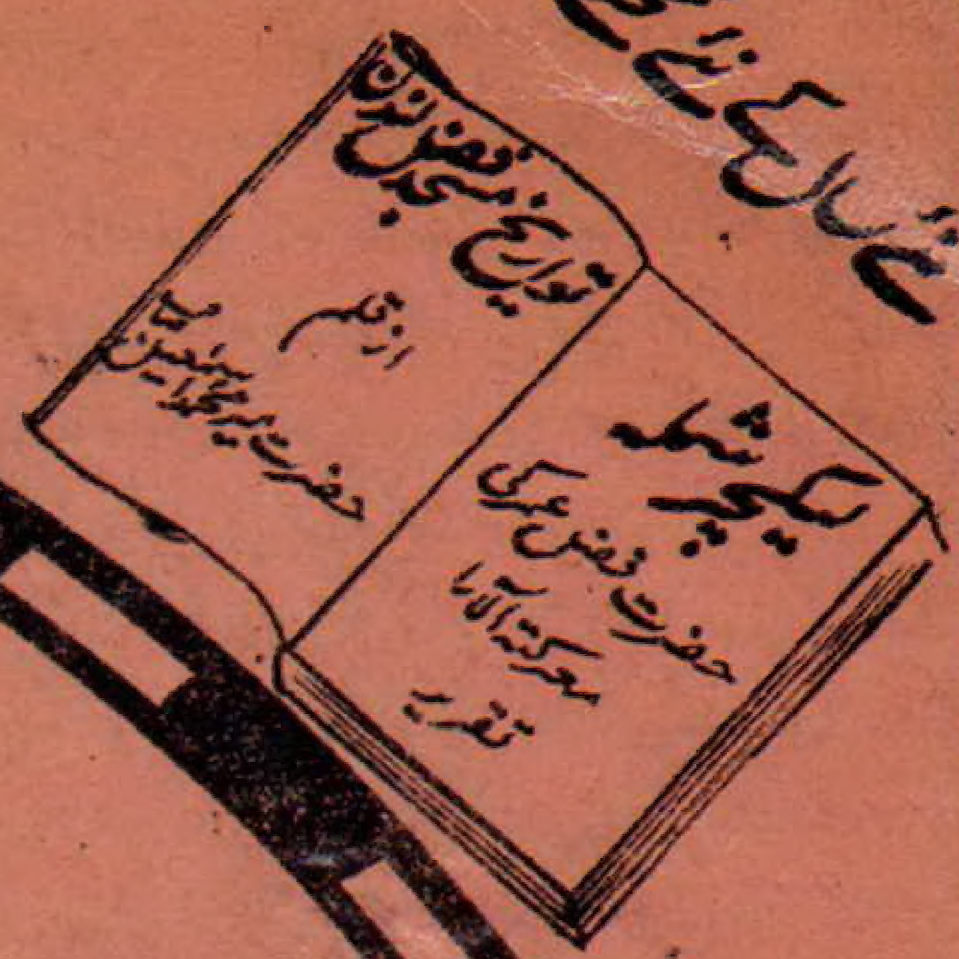 نئے سال کے نئے تحفے
لیکچر شملہ
حضرت فضل عمر کی
معرکۃ الآرا
تقریر
تواریخ مسجد فضل لندن
از قلم
حضرت میر محمد اسمعیل صاحب